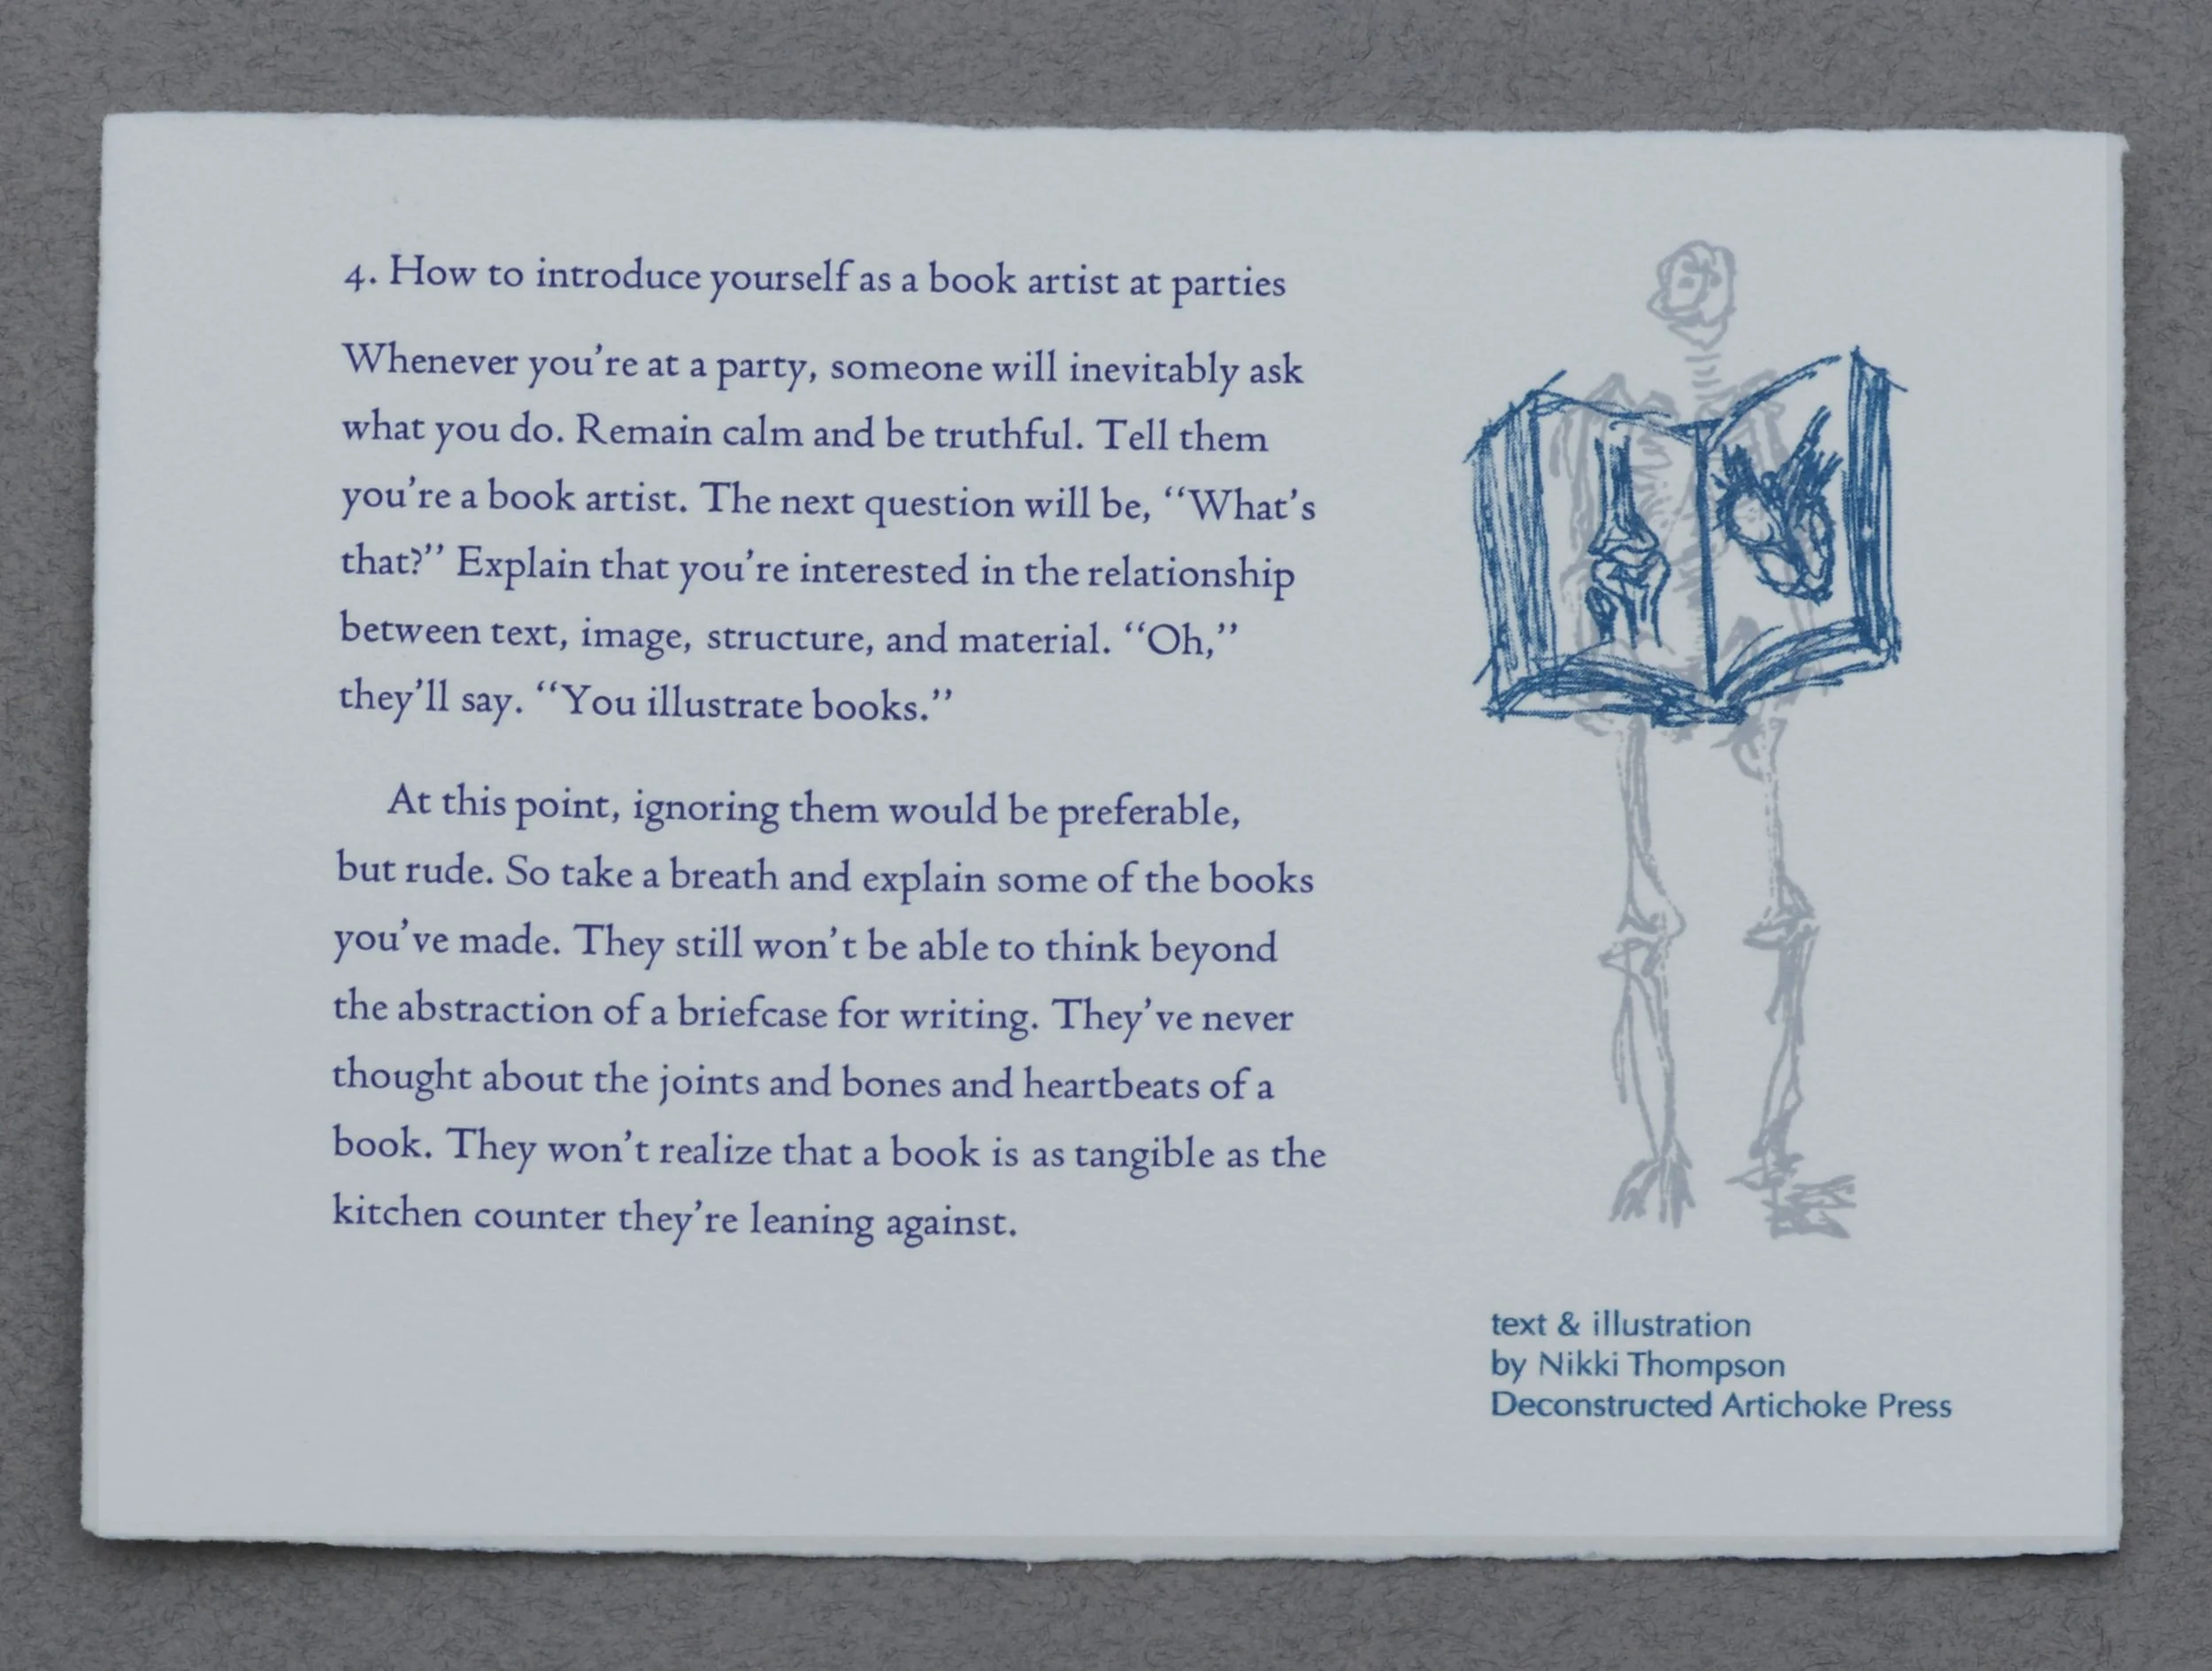 4. How to introduce yourself as a book artist at parties
Whenever you’re at a party, someone will inevitably ask
what you do. Remain calm and be truthful. Tell them
you’re a book artist. The next question will be, “What’s
that?” Explain that you’re interested in the relationship
between text, image, structure, and material. “Oh,”
they’ll say. “You illustrate books.”
At this point, ignoring them would be preferable,
but rude. So take a breath and explain some of the books
you’ve made. They still won’t be able to think beyond
the abstraction of a briefcase for writing. They’ve never
thought about the joints and bones and heartbeats of a
book. They won’t realize that a book is as tangible as the
kitchen counter they’re leaning against.
text & illustration
by Nikki Thompson
Deconstructed Artichoke Press